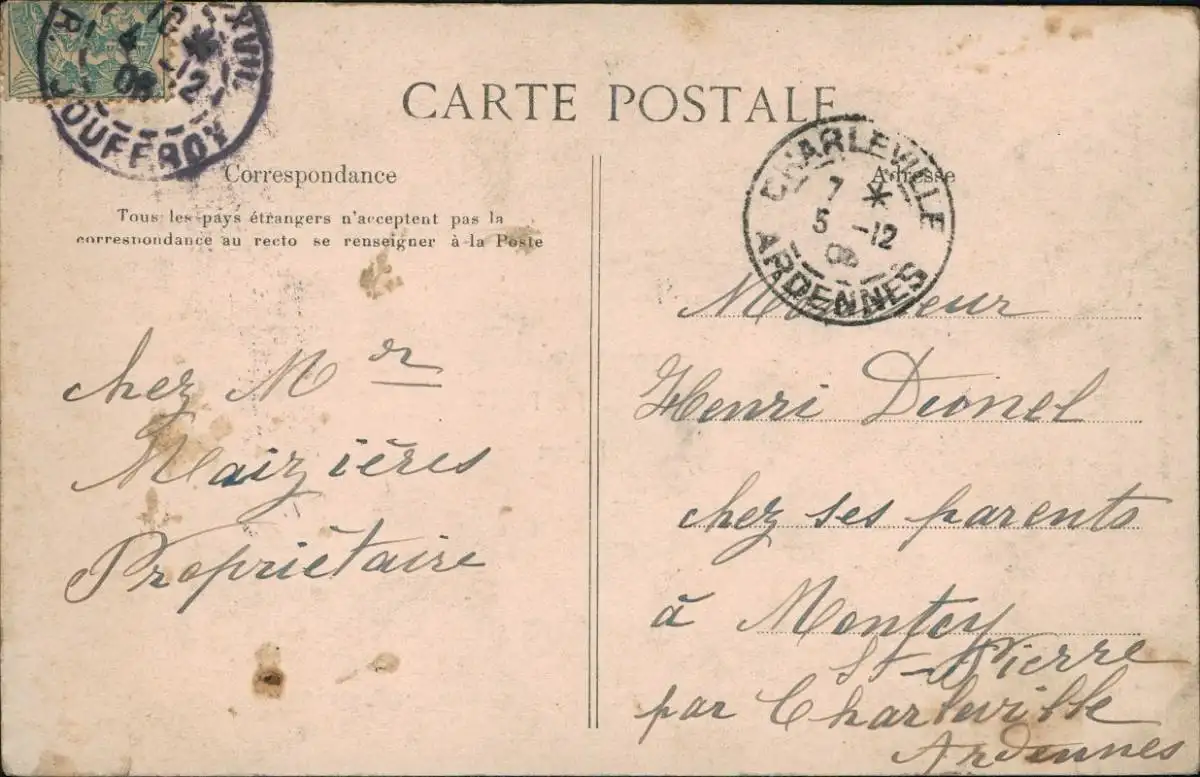 CARTE POSTALE
Correspondance
Adresse
Tous les pays étrangers n'acceptent pas la
correspondance au recto se renseigner à la Poste
JOUFFROY
4
12
CHARLEVILLE
7 *
5 -12
ARDENNES
chez Mr
Maizières
Propriétaire
Monsieur
Henri Dionel
chez ses parents
à Montcy
St-Pierre
par Charleville
Ardennes